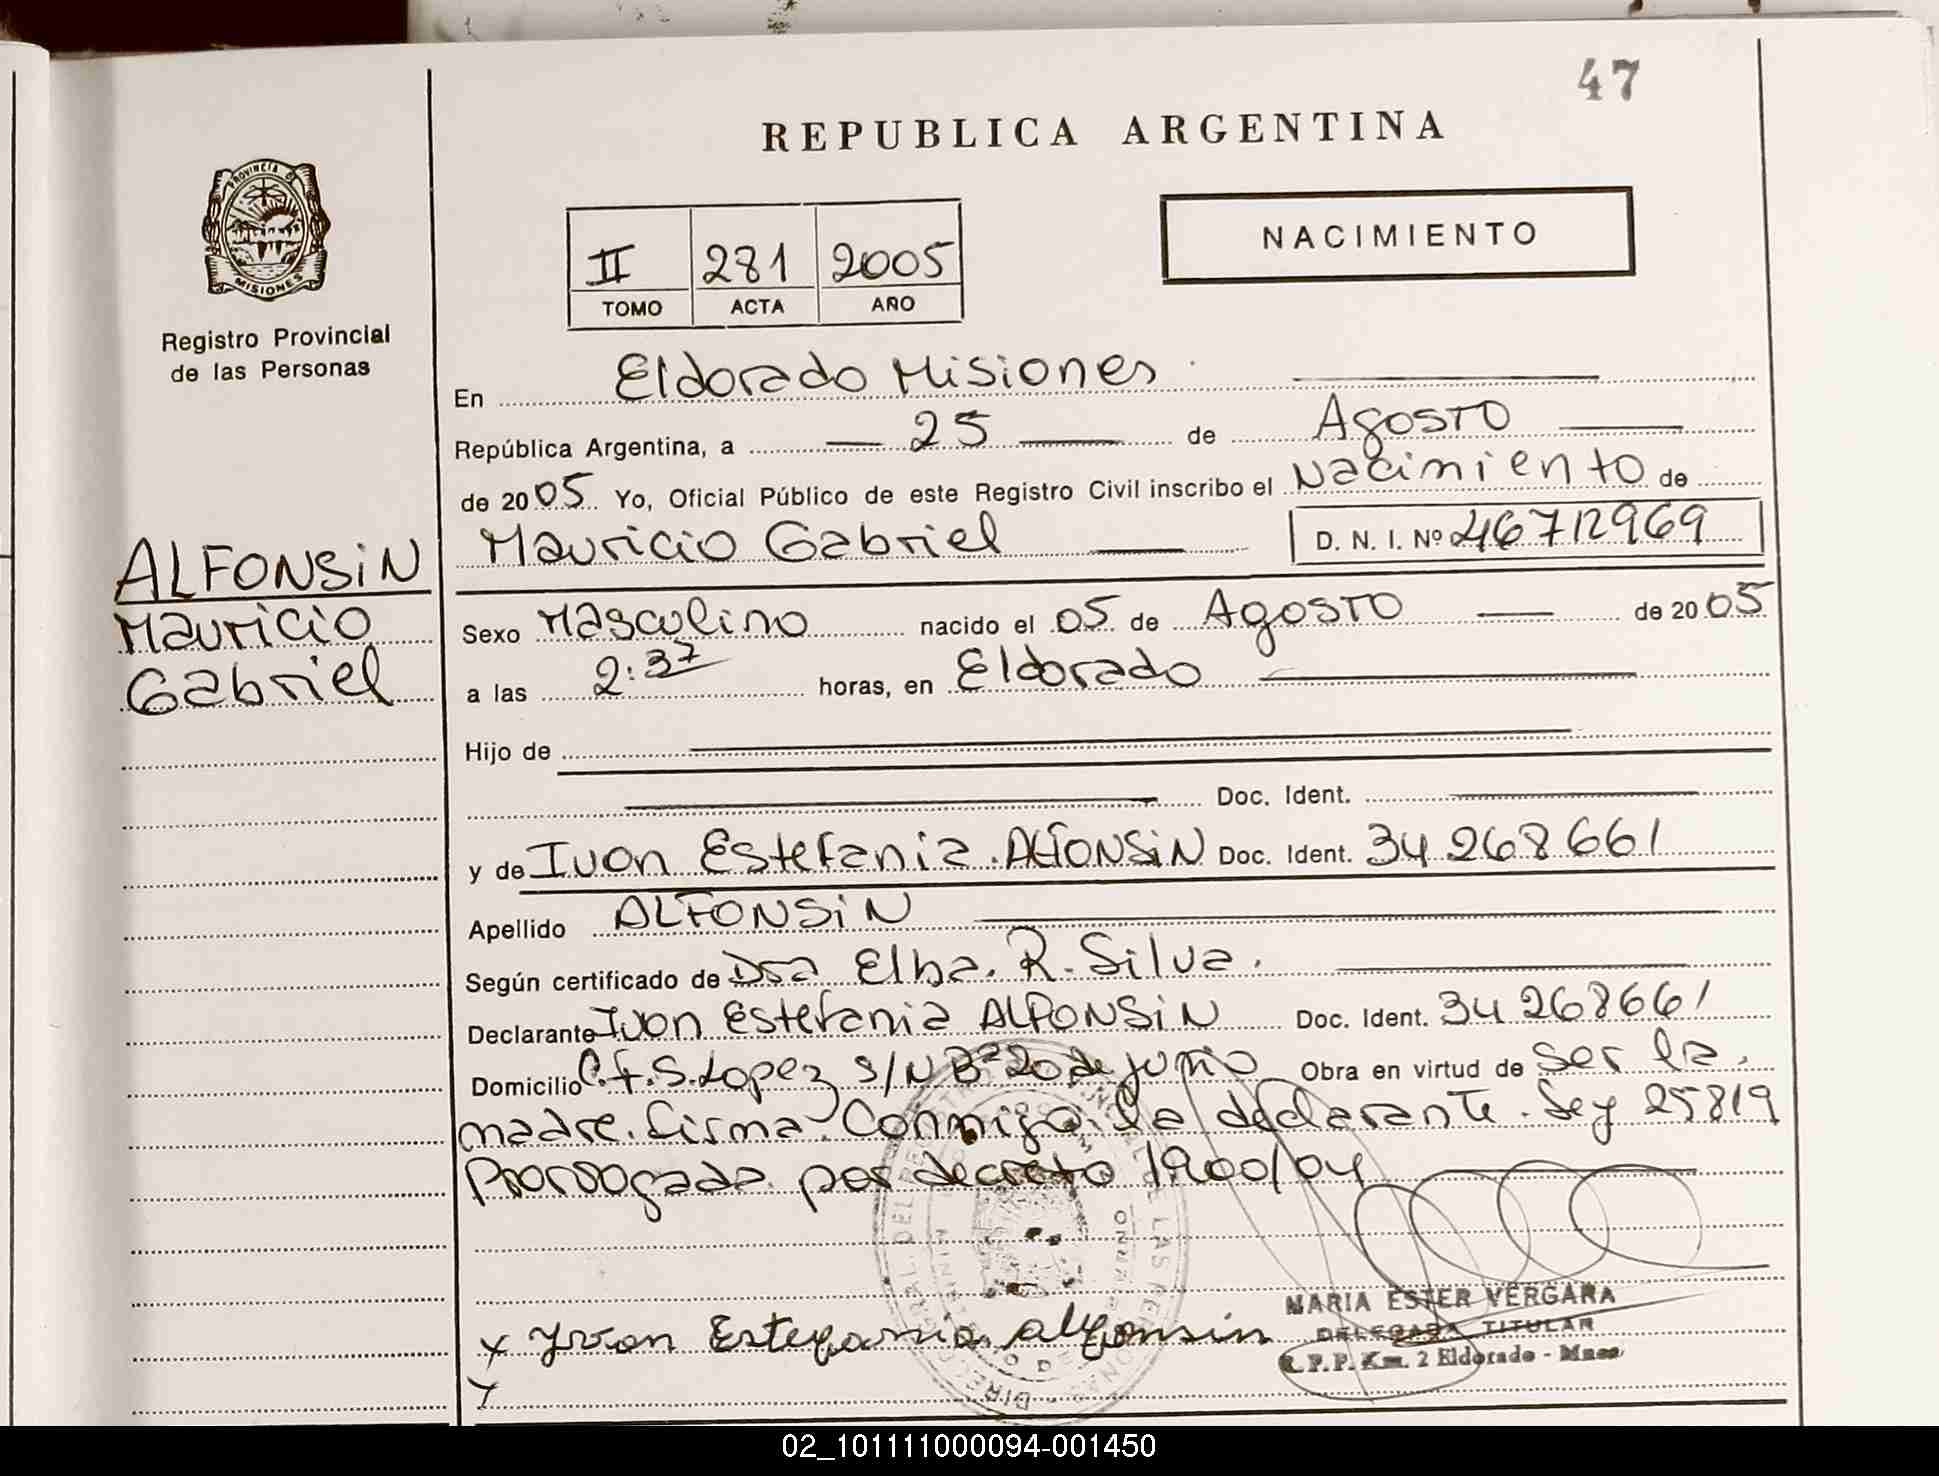 47
REPUBLICA ARGENTINA
PROVINCIA DE
MISIONES
Registro Provincial
de las Personas
II 281 2005
TOMO ACTA AÑO
NACIMIENTO
En Eldorado Misiones
República Argentina, a 25 de Agosto
de 2005 Yo, Oficial Público de este Registro Civil inscribo el Nacimiento de
Mauricio Gabriel D. N. I. Nº 46712969
ALFONSiN
Mauricio
Gabriel
Sexo Masculino nacido el 05 de Agosto de 2005
a las 2:37 horas, en Eldorado
Hijo de
Doc. Ident.
y de Ivon Estefania ALFONSiN Doc. Ident. 34 268 661
Apellido ALFONSiN
Según certificado de Dra Elba. R. Silva.
Declarante Ivon Estefania ALFONSiN Doc. Ident. 34 268661
Domicilio C.F.S. Lopez s/N Bº 20 de junio Obra en virtud de Ser la
madre. firma Conmigo la declarante. Ley 25819
Prorrogada por decreto 1900/04
x Yvon Estefania alfonsin
MARIA ESTER VERGARA
DELEGADA TITULAR
R.P.P. Km. 2 Eldorado - Mnes
02_101111000094-001450